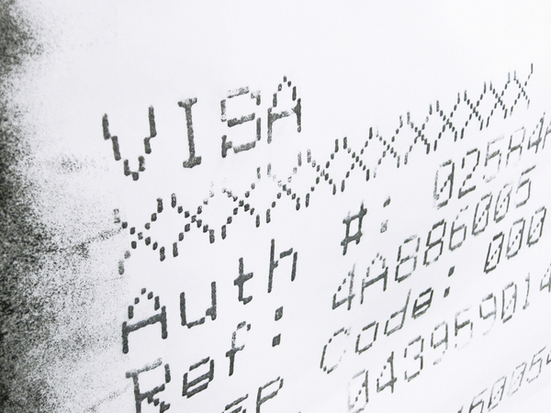 VISA
XXXXXXXXXXXX
Auth #:
Ref: 4A886005
Code: 000
043959014